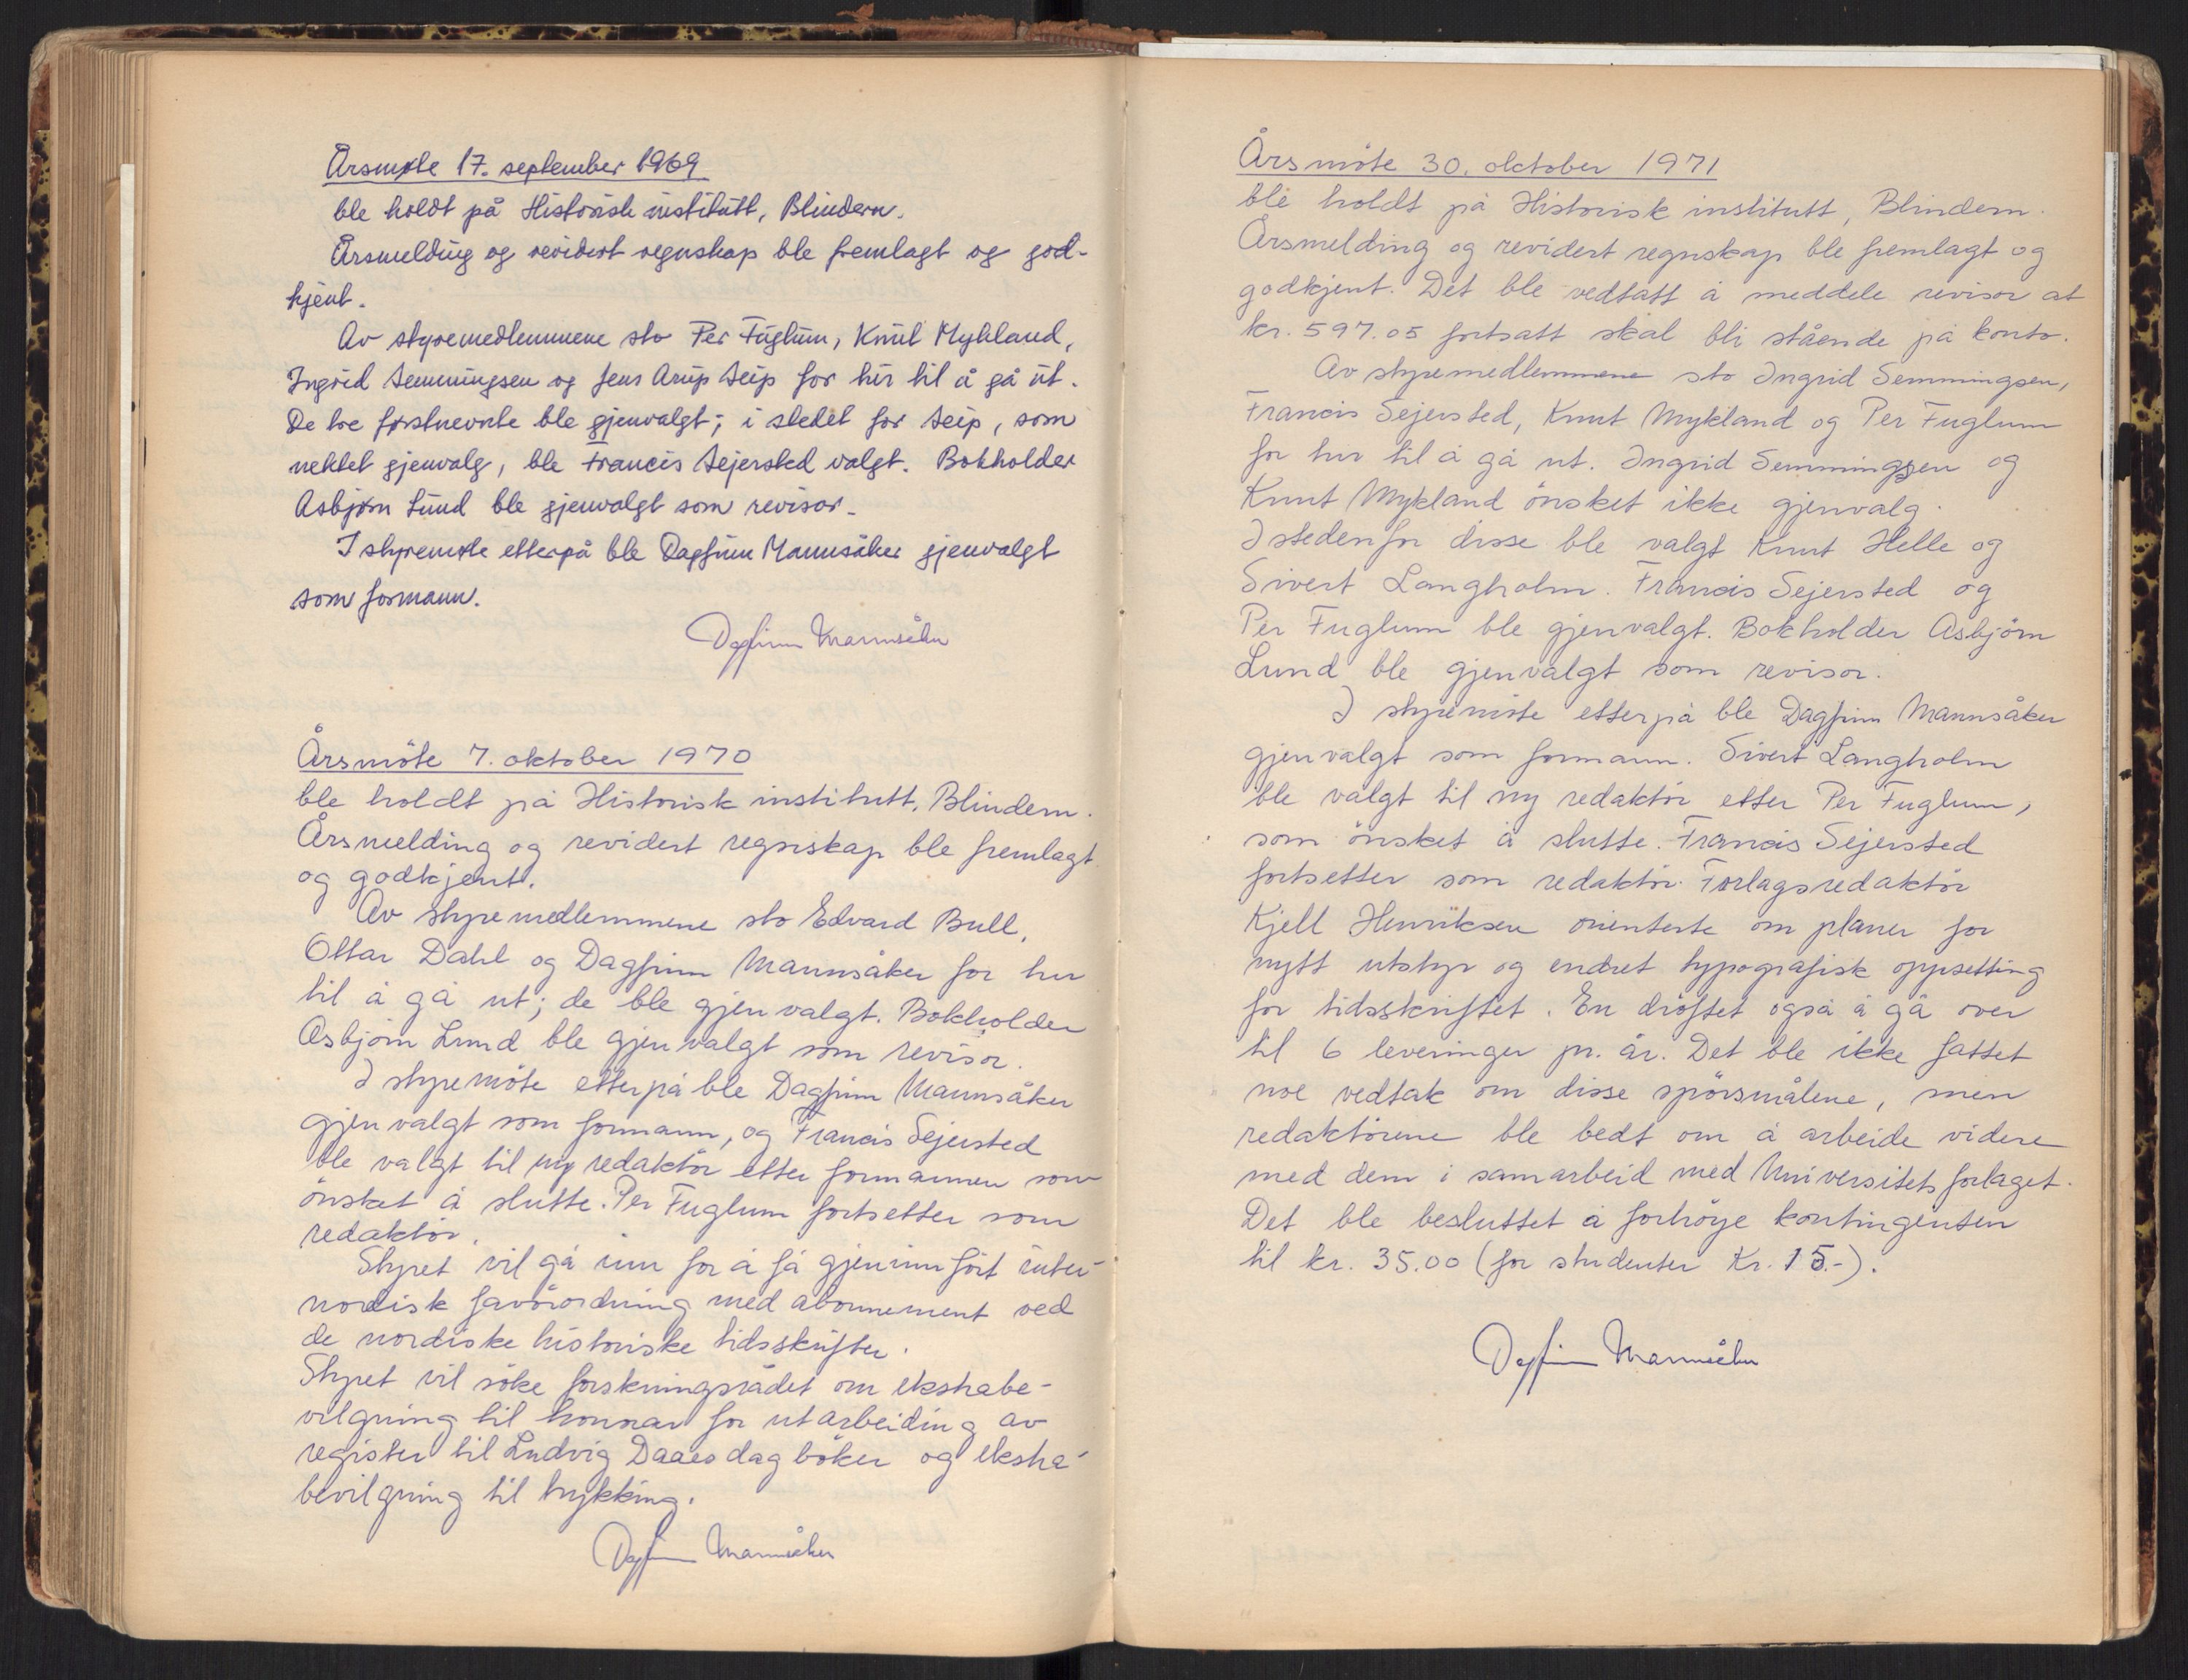 Årsmøte 17. september 1969
ble holdt på Historisk institutt, Blindern.
Årsmelding og revidert regnskap ble fremlagt og god-
kjent.
Av styremedlemmene sto Per Fuglum, Knut Mykland,
Ingrid Semmingsen og Jens Arup Seip for tur til å gå ut.
De tre førstnevnte ble gjenvalgt; i stedet for Seip, som
nektet gjenvalg, ble Francis Sejersted valgt. Bokholder
Asbjørn Lund ble gjenvalgt som revisor.
I styremøte etterpå ble Dagfinn Mannsåker gjenvalgt
som formann.
Dagfinn Mannsåker
Årsmöte 7. oktober 1970
ble holdt på Historisk institutt, Blindern.
Årsmelding og revidert regnskap ble fremlagt
og godkjent.
Av styremedlemmene sto Edvard Bull,
Ottar Dahl og Dagfinn Mannsåker for tur
til å gå ut; de ble gjenvalgt. Bokholder
Asbjörn Lund ble gjenvalgt som revisor.
I styremöte etterpå ble Dagfinn Mannsåker
gjenvalgt som formann, og Francis Sejersted
ble valgt til ny redaktör etter formannen som
önsket å slutte. Per Fuglum fortsetter som
redaktör.
Styret vil gå inn for å få gjeninnfört inter-
nordisk favörordning med abonnement ved
de nordiske historiske tidsskrifter.
Styret vil söke forskningsrådet om ekstrabe-
vilgning til honorar for utarbeiding av
register til Ludvig Daaes dagböker og ekstra-
bevilgning til trykking.
Dagfinn Mannsåker
Årsmöte 30. oktober 1971
ble holdt på Historisk institutt, Blindern.
Årsmelding og revidert regnskap ble fremlagt og
godkjent. Det ble vedtatt å meddele revisor at
kr. 597.05 fortsatt skal bli stående på konto.
Av styremedlemmene sto Ingrid Semmingsen,
Francis Sejersted, Knut Mykland og Per Fuglum
for tur til å gå ut. Ingrid Semmingsen og
Knut Mykland önsket ikke gjenvalg.
I stedenfor disse ble valgt Knut Helle og
Sivert Langholm. Francis Sejersted og
Per Fuglum ble gjenvalgt. Bokholder Asbjörn
Lund ble gjenvalgt som revisor.
I styremöte etterpå ble Dagfinn Mannsåker
gjenvalgt som formann. Sivert Langholm
ble valgt til ny redaktör etter Per Fuglum,
som önsket å slutte. Francis Sejersted
fortsetter som redaktör. Forlagsredaktör
Kjell Henriksen orienterte om planer for
nytt utstyr og endret typografisk oppsetting
for tidsskriftet. En dröftet også å gå over
til 6 leveringer pr. år. Det ble ikke fattet
noe vedtak om disse spörsmålene, men
redaktörene ble bedt om å arbeide videre
med dem i samarbeid med Universitetsforlaget.
Det ble besluttet å forhöye kontingenten
til kr. 35.00 (for studenter Kr. 15.-).
Dagfinn Mannsåker